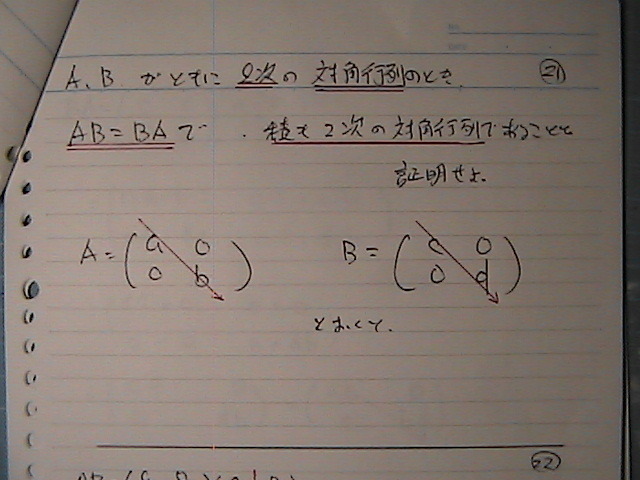 A、B がともに 2次の 対角行列のとき、 ㉑
AB=BAで、積も2次の対角行列であることを
証明せよ。
A=(a 0
0 b)
B=(c 0
0 d)
とおくと、
㉒